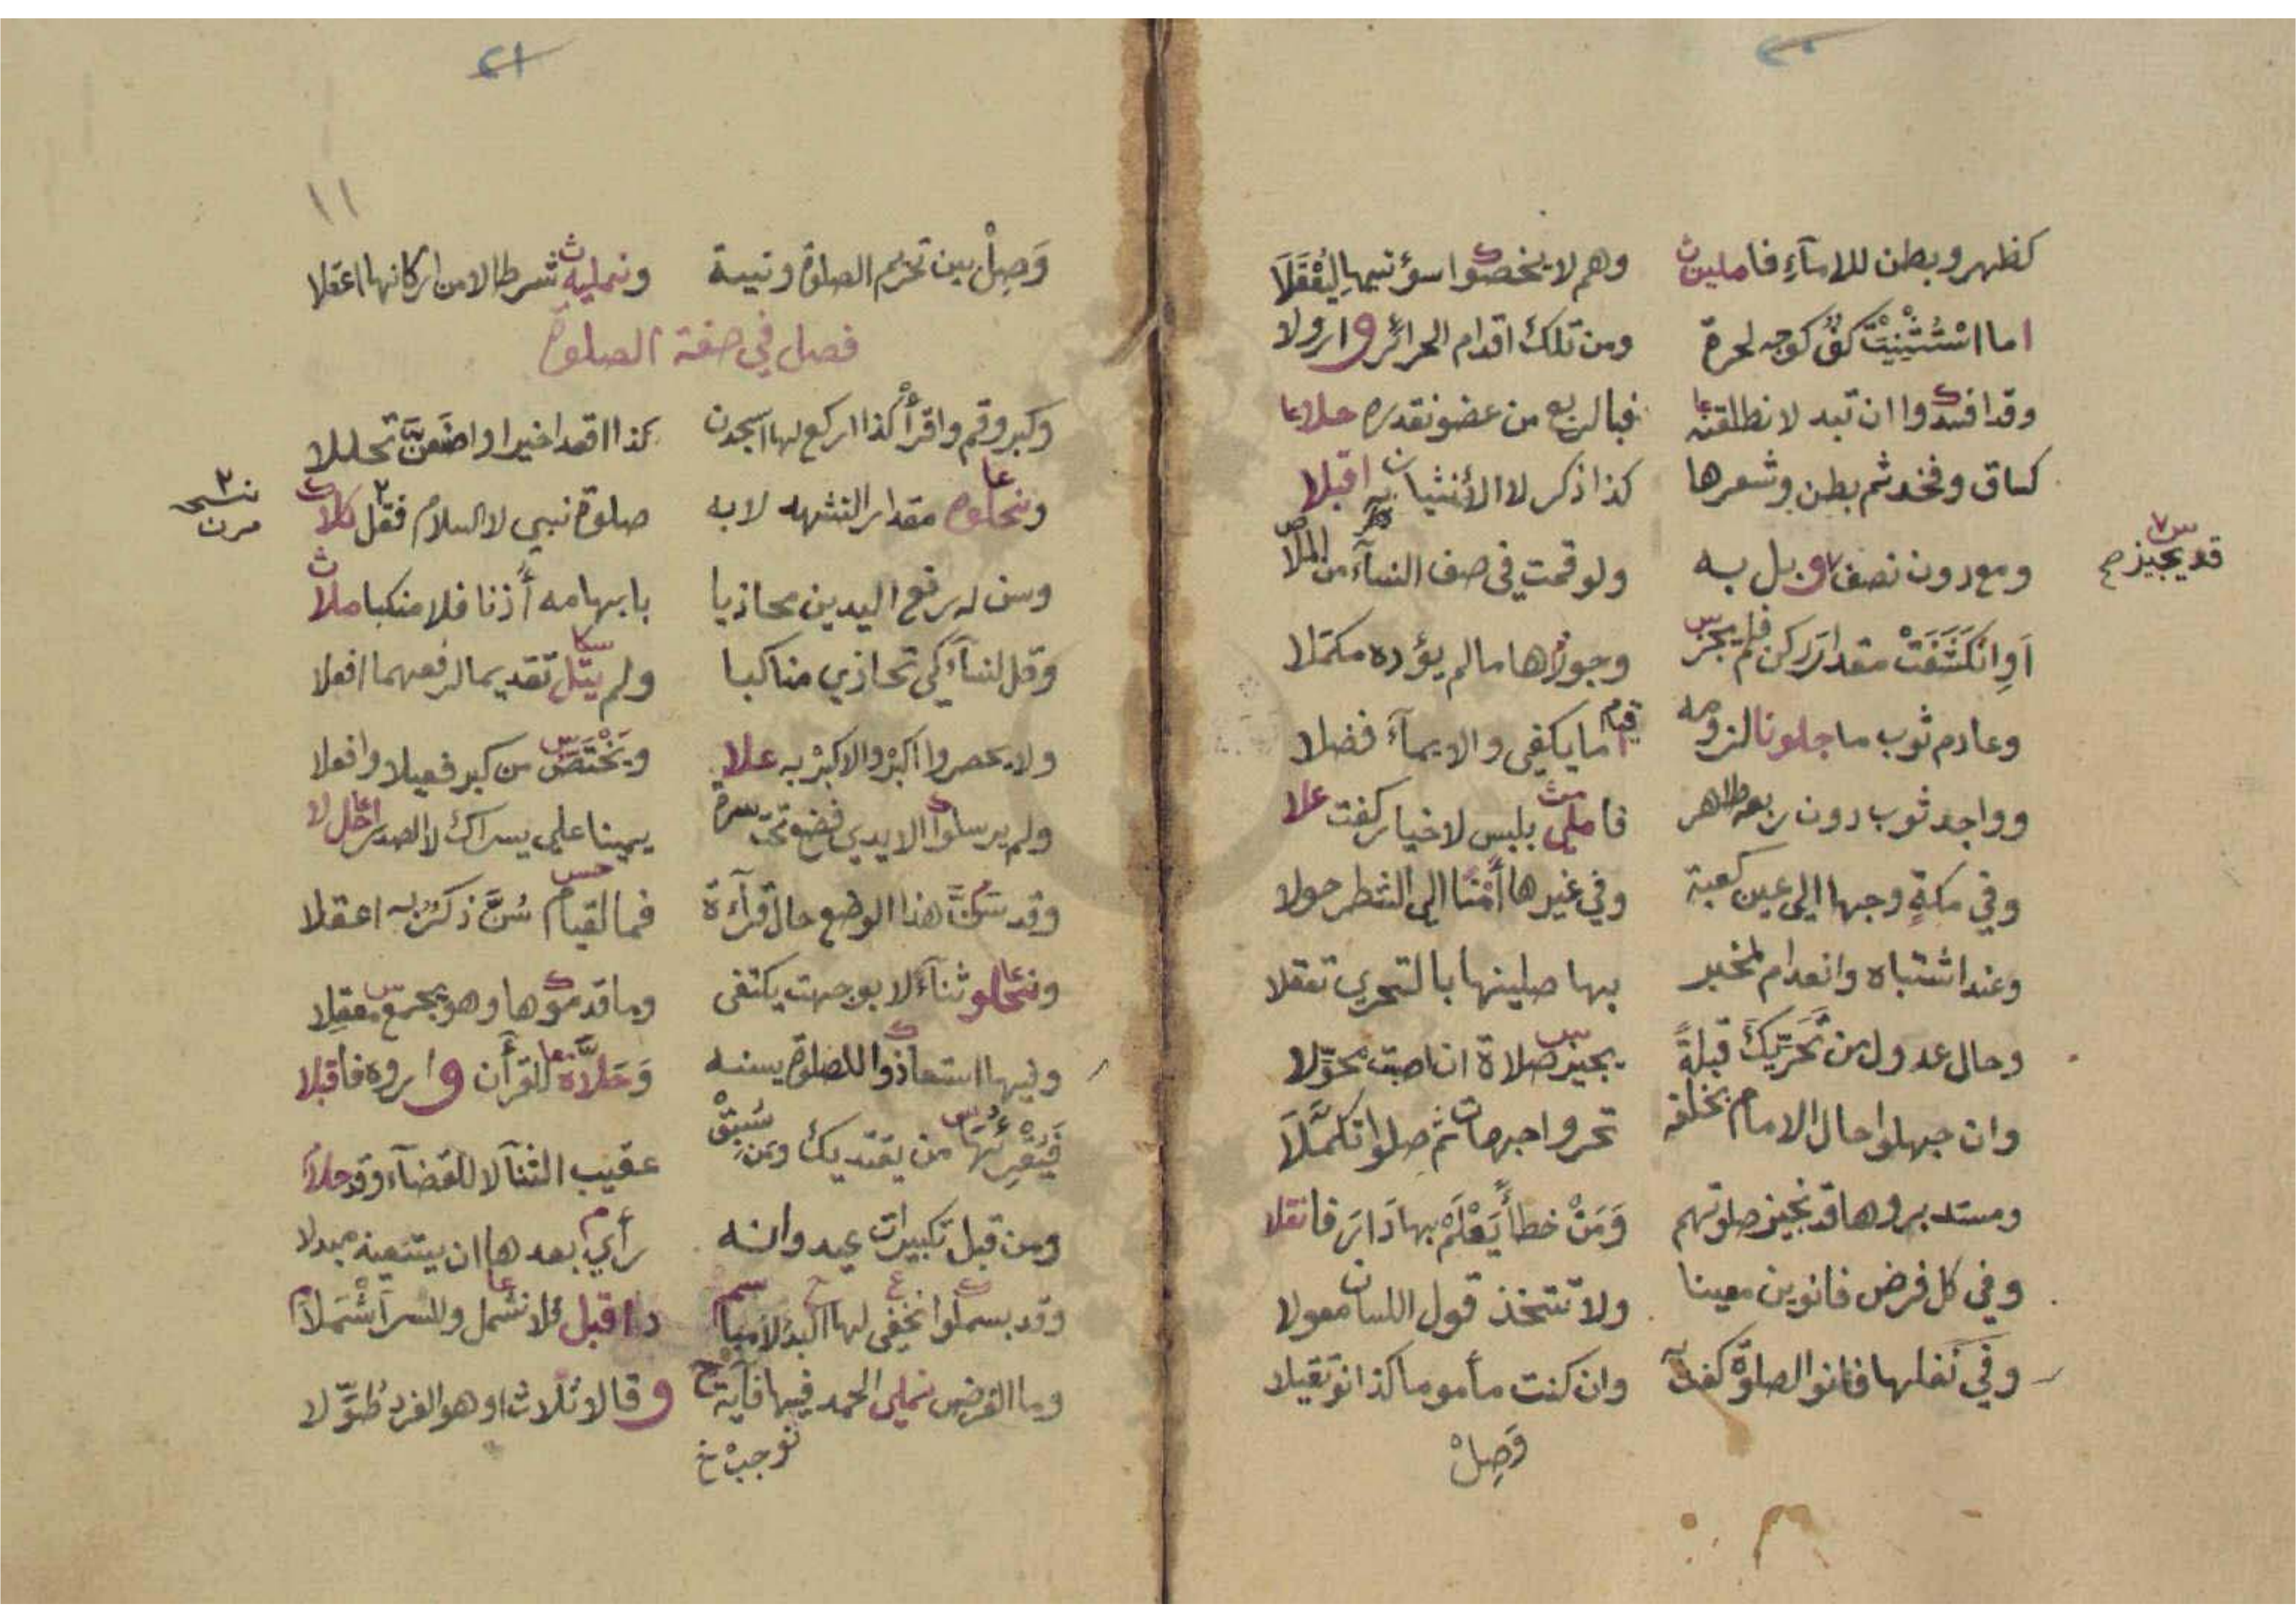 ٢٠
كظهر وبطن للامآءِ فا ملين وهم لا يخصوا سؤتيها
اما اسْتُثْنِيَتْ كفٌّ كوجه لحرة ومن تلك اقدام الحرائر وارولا
وقد افسدوا ان تبد لا نطلقنه فبالربع من عضو نقدره حلا
كساق وفخذ ثم بطن وشعرها كذا ذكر لا الأنثيان اقبلا
ومع دون نصف وبل به ولو قمت في صف النسآء من الملا
قد يجيز ح
اَوِ انْكَشَفَتْ مقدار ركن فلم يجز وجولاها ما لم يؤده مكملا
وعادم ثوب ما جلونا لزومه قيام ما يكفي والايمآء فضلا
وواجد ثوب دون ربع طاهر فاملي بلبس لاخيار كفت علا
وفي مكةٍ وجها الى عين كعبة وفي غيرها أَمْنًا الى الشطر حولا
وعند اشتباه وانعدام لمخبر بها صلينها بالتحري تعقلا
وحال عدول من تَحَرِّيكَ قبلةً يجيز صلاة ان اصبت محوّلا
وان جهلوا حال الامام بخلفه تحروا جهات ثم صلوا تكمَّلَا
ومستدبروها قد نجيز صلوتهم وَمَنْ خطأً يَعْلَمْ بها دَارَ فانقلا
وفي كل فرض فانوين معينا ولا تتخذ قول اللسان معولا
وفي نفلها فانو الصلوة كفت وان كنت مأموما كذا نو تقبلا
وَصِلْ
٢١
١١
وَصِلْ بين تحريم الصلوة ونية ونمليه شرطا لامن اركانها اعقلا
فصل في صفة الصلوة
وكبر وقم واقرأْ كذا اركع لها اسجدن كذا اقعد اخيرا واضعنَّ تحللا
ونحلوه مقدار التشهد لا به صلوة نبي لا السلام فقل كلا
وسن له رفع اليدين محاذيا بابهامه أذنا فلا منكبا ملا
وقل لنسآءٍ كي تحاذي مناكبا ولم يتل تقديما لرفعهما افعلا
ولا يحصروا اكبرْ والاكبرْ به علا ويَخْتَصُّ من كبر فعيلا وافعلا
ولم يرسلوا الايدي فضع تحت سرة يمينا على يسراك لا الصدر اخال لا
وقد سَنَّ هذا الوضع حال قرآءة فما لقيام سُنَّ ذكرٌ به اعقلا
ونحلو ثنآءً لا بوجهت يكتفى وما قدموها وهو يجمع معقلا
وفيها استعاذوا للصلوة يسنه وَحَلَّاهُ للقرآن و اروه فاقبلا
من يقتديك ومن سُبِقْ عقيب الثنآ لا للقضآء وقد حلا
ومن قبل تكبيرات عيد وانه رأي بعدها ان يبتغيه مبدلا
وقد بسملوا نخفي لها فلا نشمل والسر اشْمَلَا
وما الفرض نملي الحمد فيها فآية وقالا ثلاث او هو الفرد طُوِّلا
نوجبْ خ